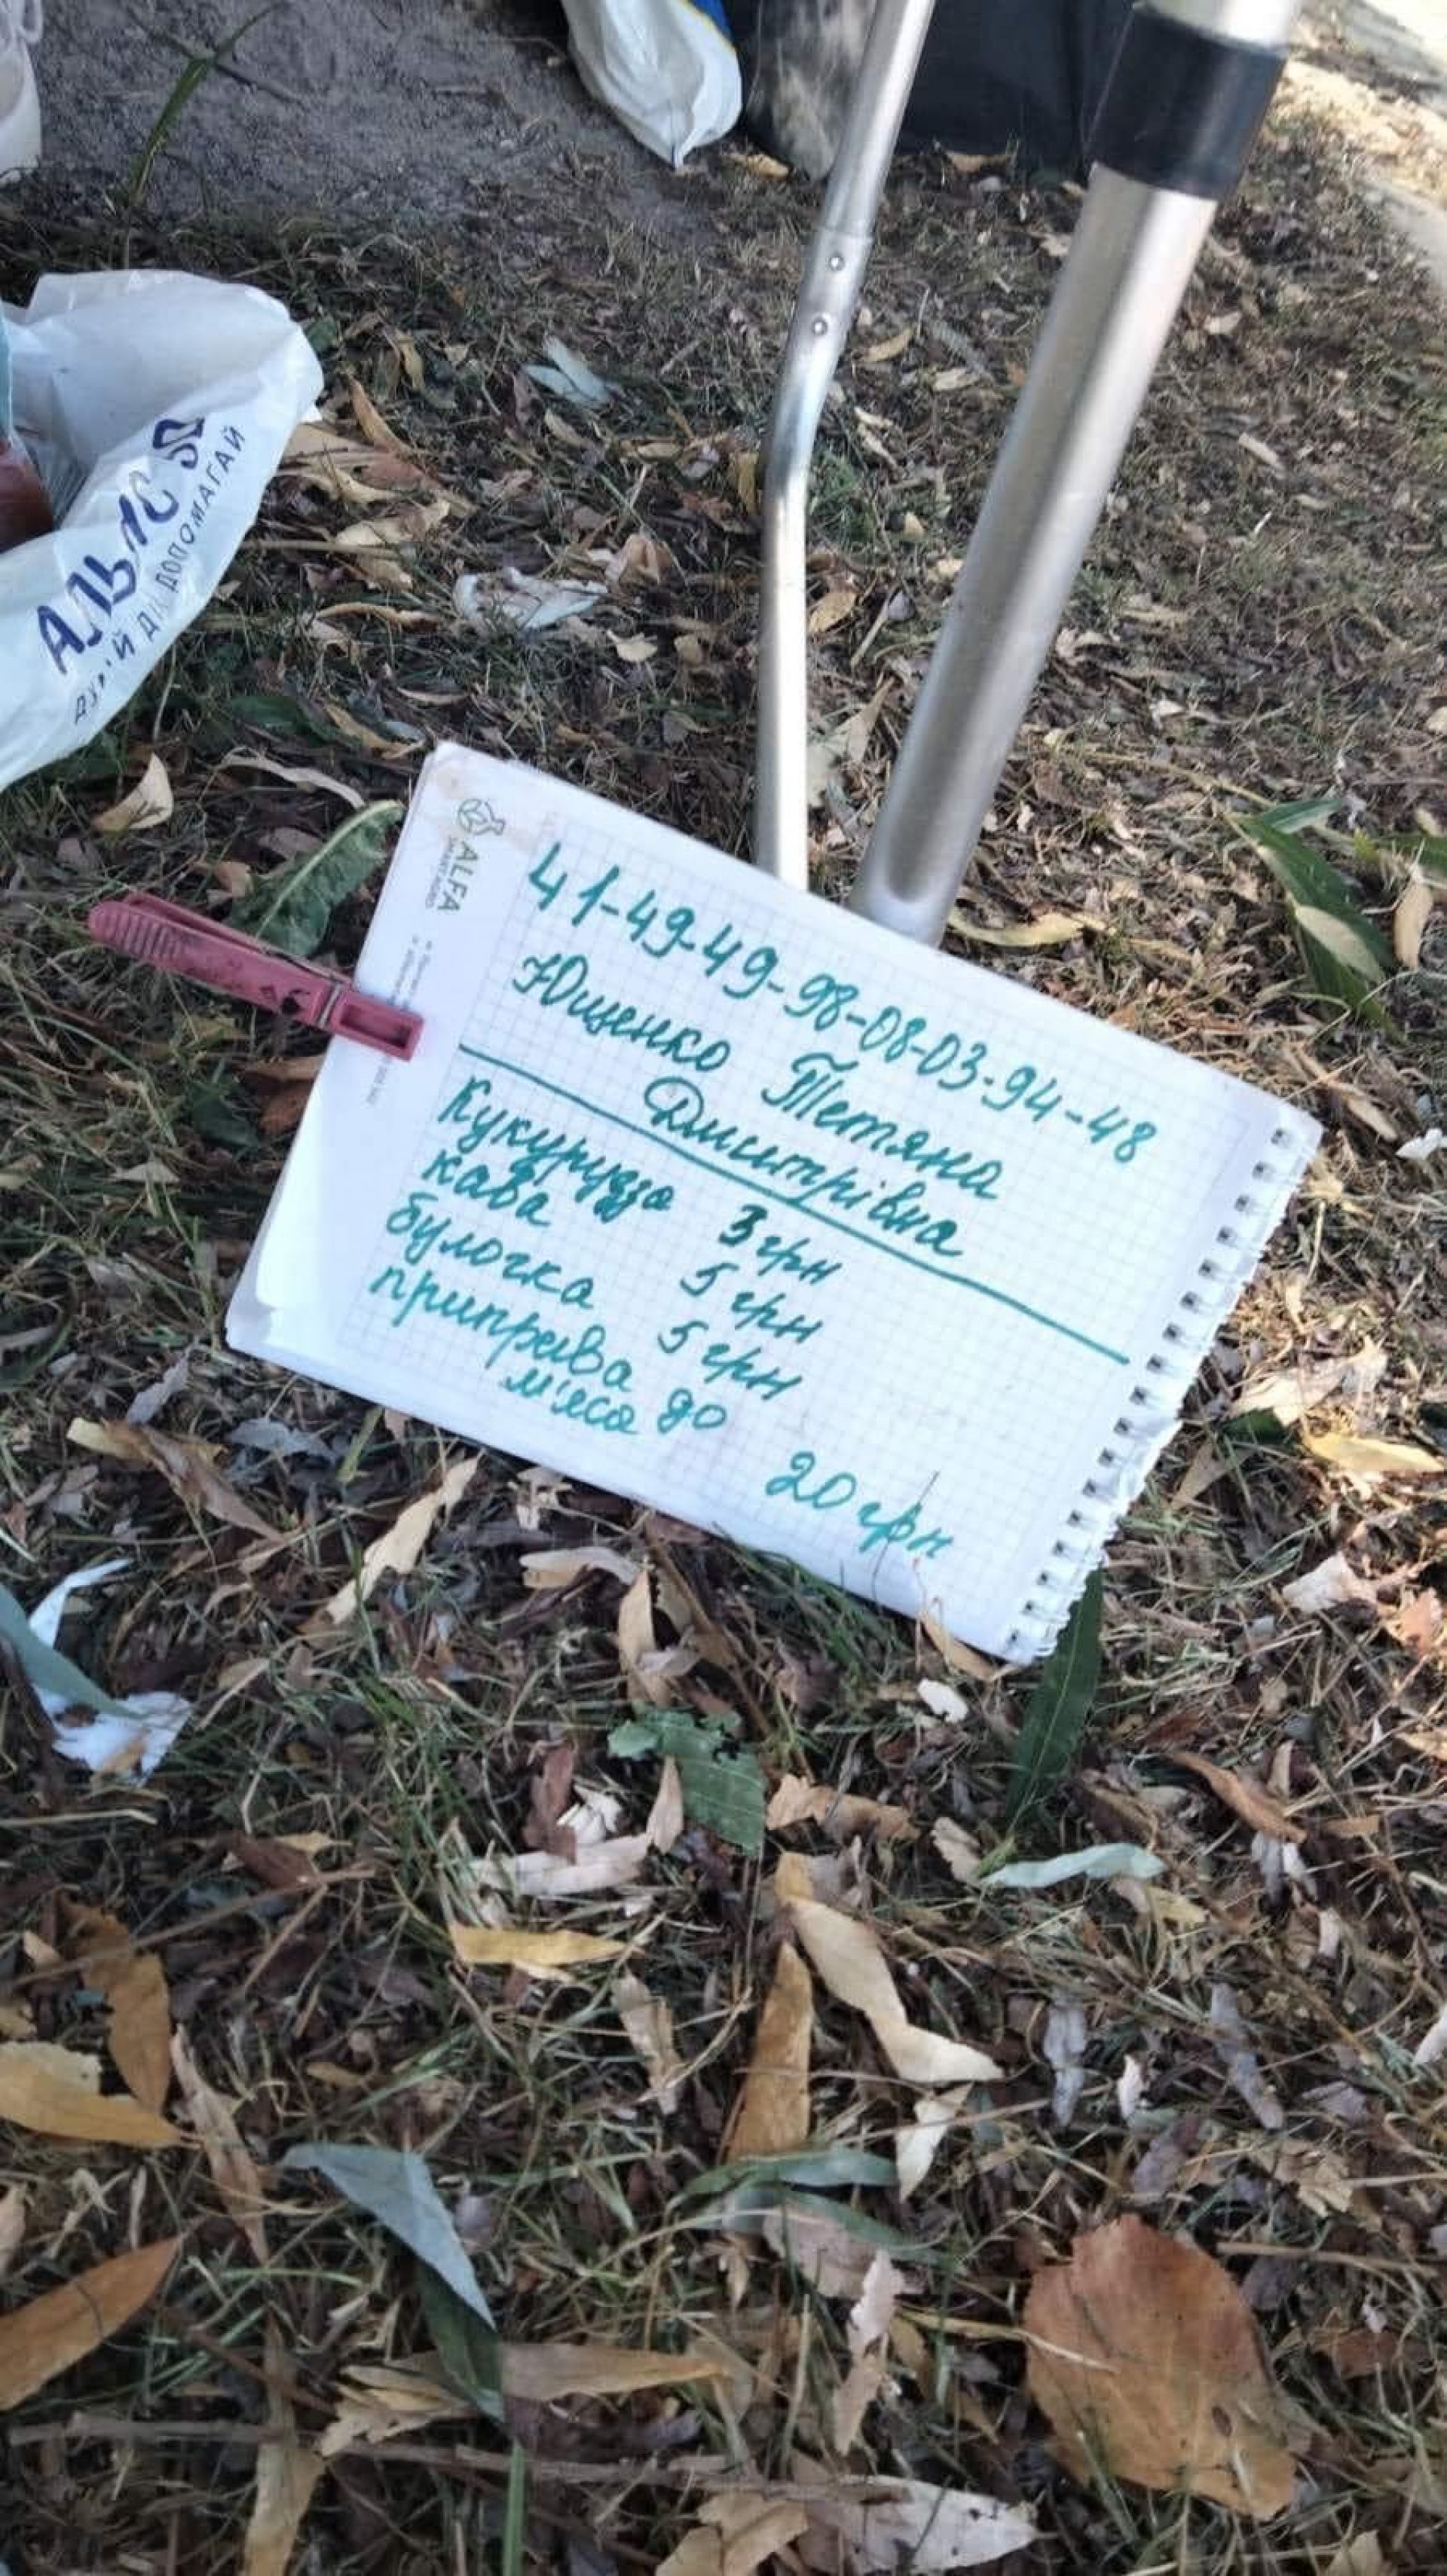 АЛЬЯС
ДІЙ ДОПОМАГАЙ
ALFA
41-49-49-98-08-03-94-48
Ющенко Тетяна
Дмитрівна
Кукурудза 3 грн
кава 5 грн
булочка 5 грн
приправа до
м'яса
20 грн